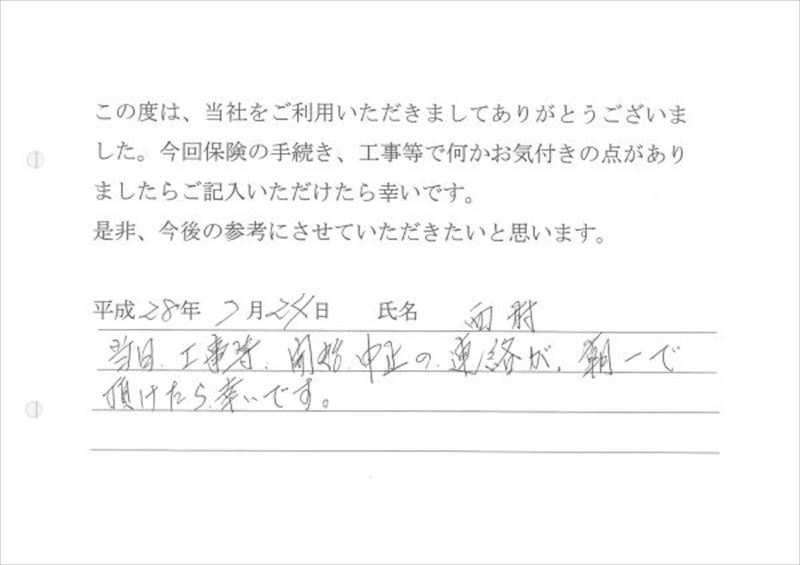 この度は、当社をご利用いただきましてありがとうございま
した。今回保険の手続き、工事等で何かお気付きの点があり
ましたらご記入いただけたら幸いです。
是非、今後の参考にさせていただきたいと思います。
平成28年 7月24日 氏名 西村
当日、工事等、開始、中止の、連絡が、朝一で
頂けたら、幸いです。